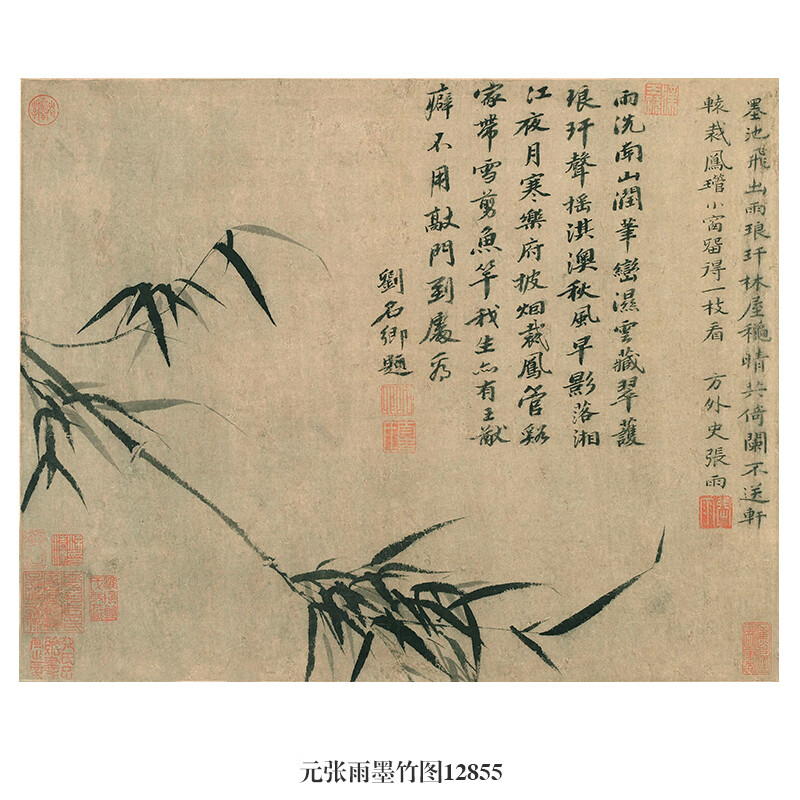 墨池飛出雨琅玕林屋穐晴共倚闌不送軒
轅栽鳳琯小窗留得一枝看 方外史張雨
雨洗南山潤筆巒濕雲藏翠護
琅玕聲搖淇澳秋風早影落湘
江夜月寒樂府披烟裁鳳管谿
家帶雪剪魚竿我生亦有王猷
癖不用敲門到處看
劉名卿題
元张雨墨竹图12855